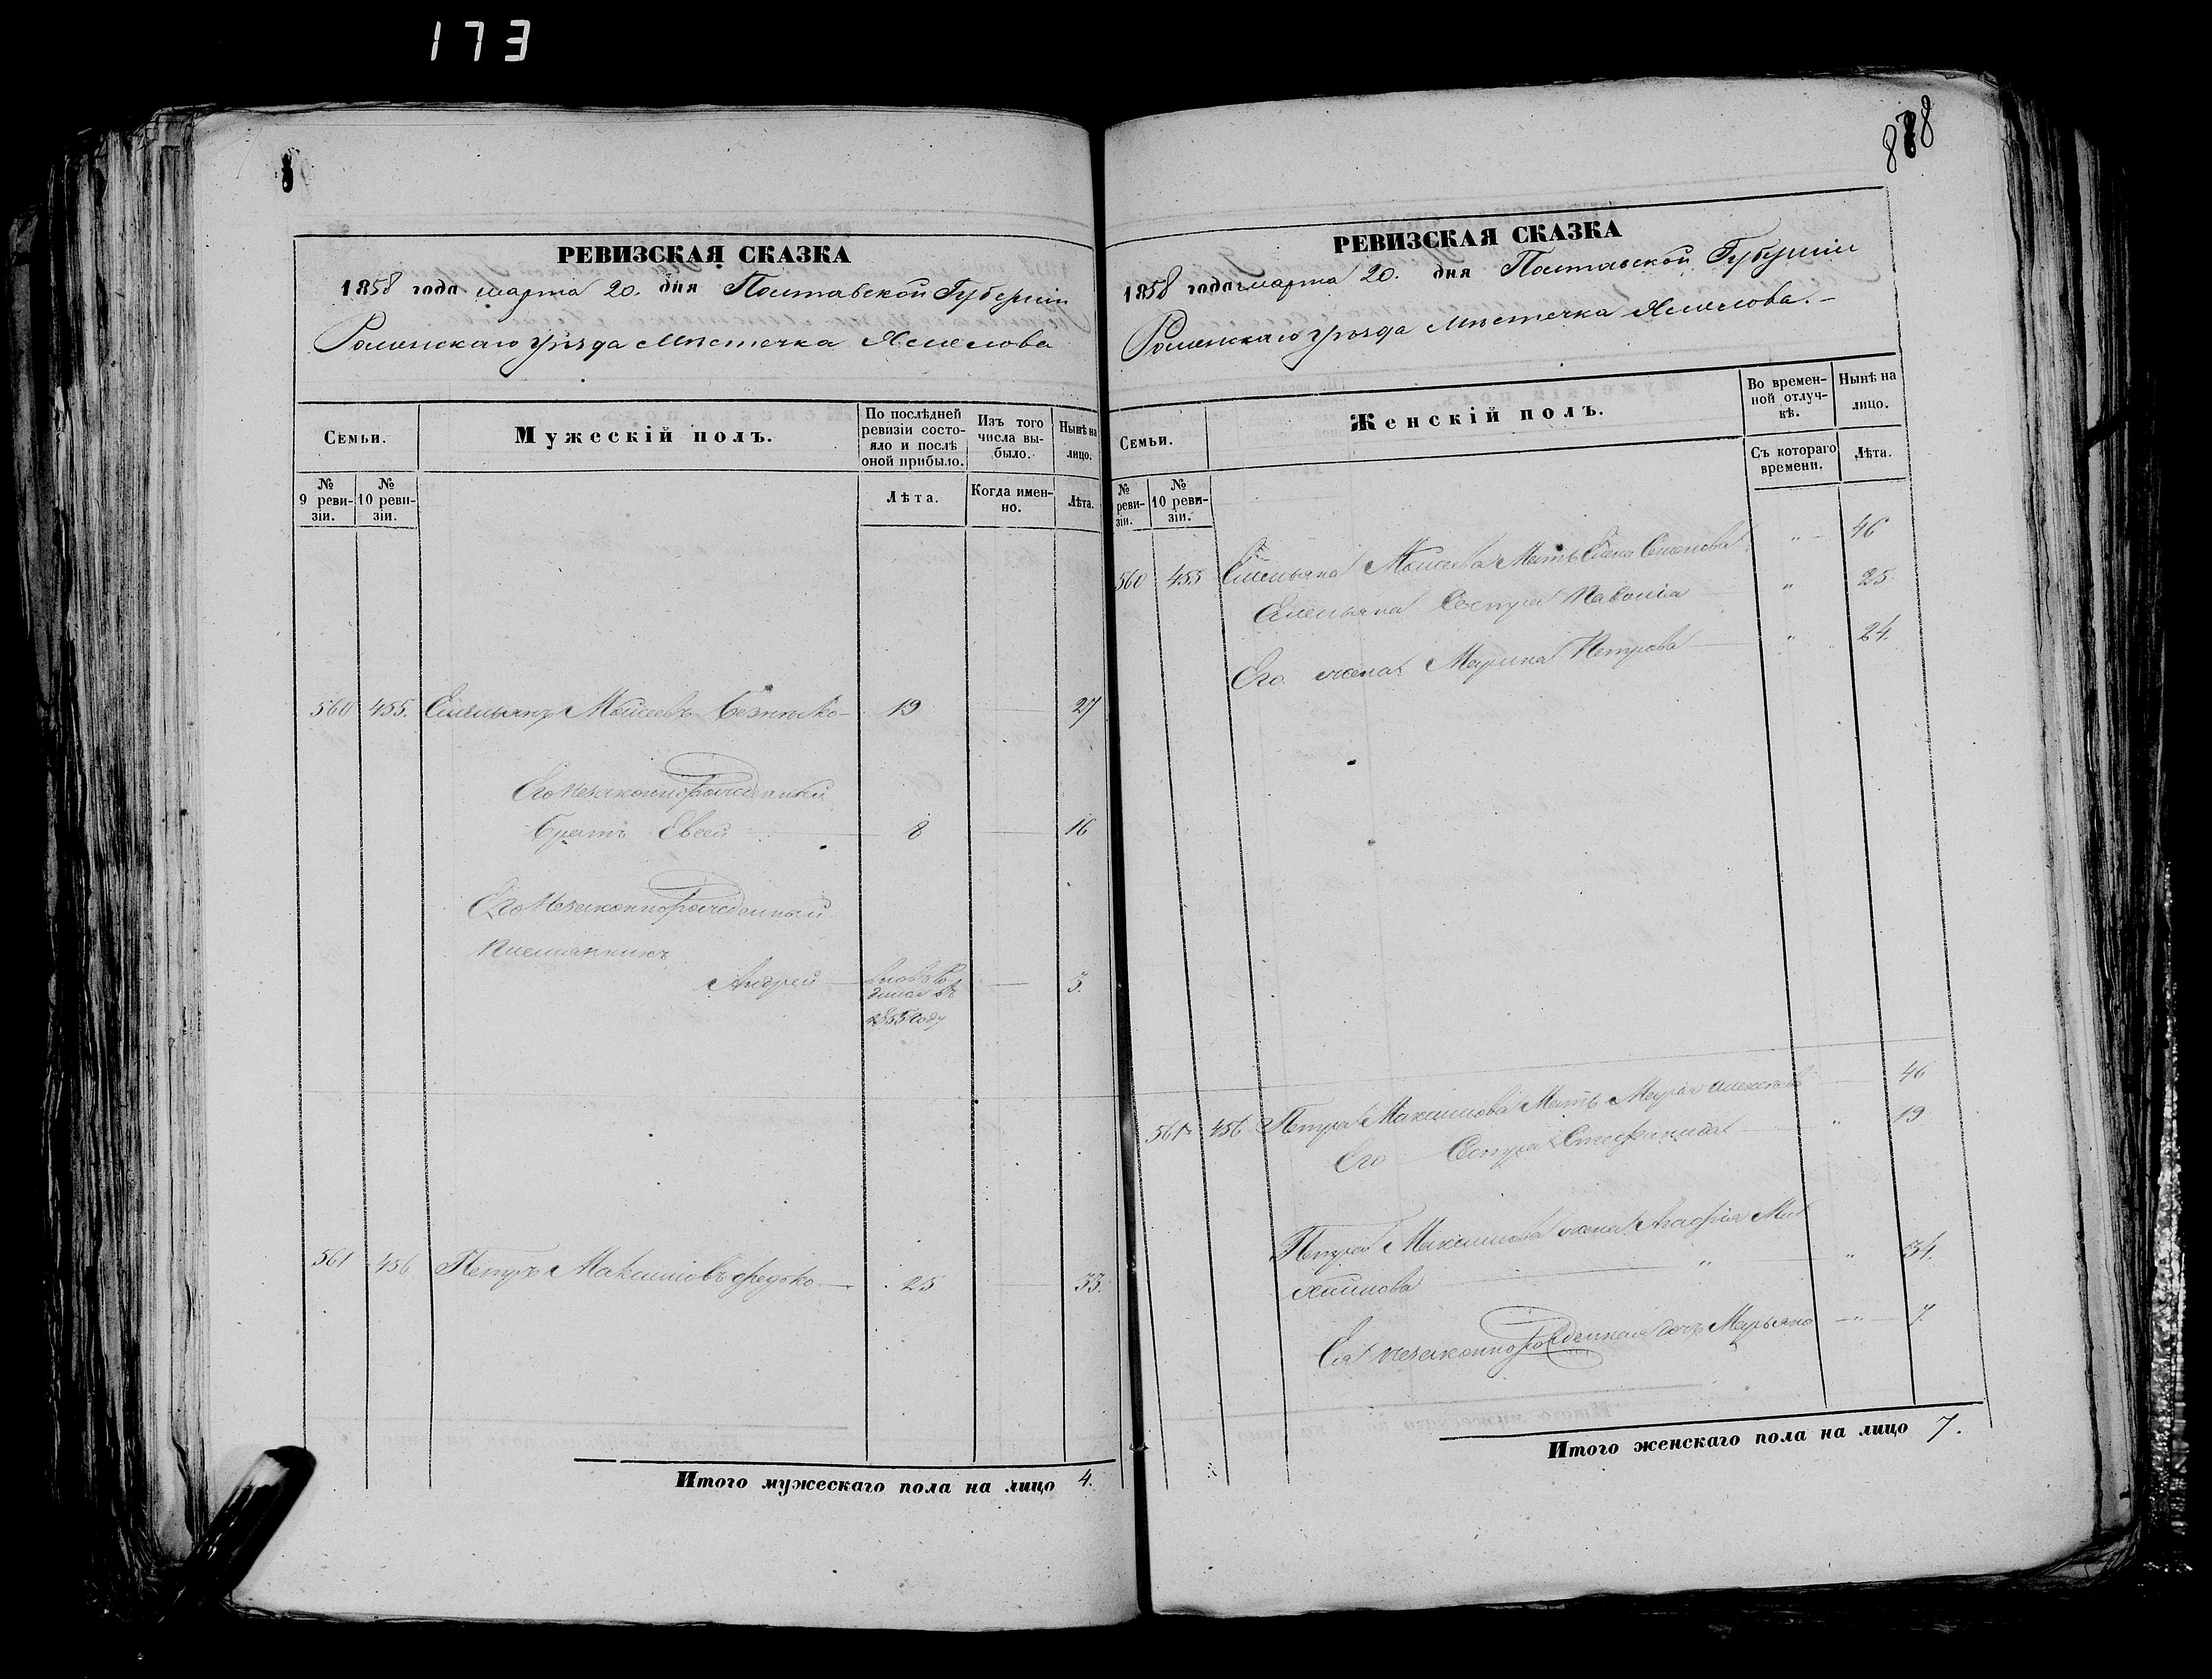 173
РЕВИЗСКАЯ СКАЗКА
1858 года марта 20. дня Полтавской Губерніи
Роменскаго уѣзда мѣстечка Смелова
Семьи.
Мужескій полъ.
По послѣдней ревизіи состояло и послѣ оной прибыло.
Изъ того числа выбыло.
Нынѣ на лицо.
№ 9 ревизіи.
№ 10 ревизіи.
Лѣта.
Когда именно.
Лѣта.
560 455. Емельянъ Моисеевъ 19 27
Его незаконнорожденный
братъ Евсей 8 16
Его незаконнорожденный
племянникъ
Андрей 3.
1855 году
561 456 Петръ Максимовъ Федько 25 33.
Итого мужескаго пола на лицо 4.
878
РЕВИЗСКАЯ СКАЗКА
1858 года марта 20. дня Полтавской Губерніи
Роменскаго уѣзда мѣстечка Смелова.
Семьи.
Женскій полъ.
Во временной отлучкѣ.
Нынѣ на лицо.
№ ревизіи.
№ 10 ревизіи.
Съ котораго времени.
Лѣта.
560 455 Емельяна Моисеева Мать Семенова " 46
Емельяна Сестра " 25.
Его жена Марина Петрова " 24.
561 456 Петра Максимова Мать 46
Его Сестра Стефанида " 19
Петра Максимова жена Агафія Ми
хайлова " " 34.
Ея незаконнорожденная дочь Марьяна " 7.
Итого женскаго пола на лицо 7.